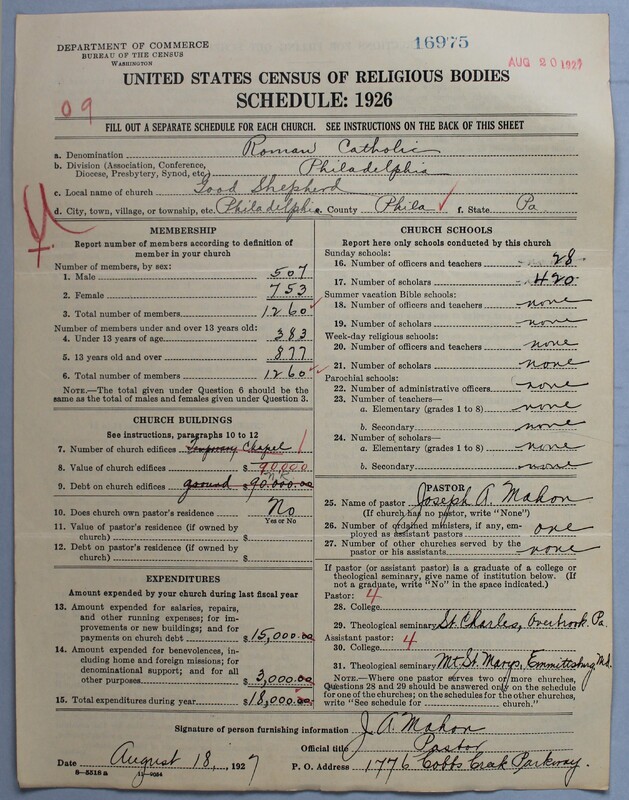 DEPARTMENT OF COMMERCE
BUREAU OF THE CENSUS
WASHINGTON
16975
AUG 20 1927
UNITED STATES CENSUS OF RELIGIOUS BODIES
SCHEDULE: 1926
09
FILL OUT A SEPARATE SCHEDULE FOR EACH CHURCH. SEE INSTRUCTIONS ON THE BACK OF THIS SHEET
a. Denomination Roman Catholic
b. Division (Association, Conference, Diocese, Presbytery, Synod, etc.) Philadelphia
c. Local name of church Good Shepherd
d. City, town, village, or township, etc. Philadelphia e. County Phila f. State Pa
MEMBERSHIP
Report number of members according to definition of member in your church
Number of members, by sex:
1. Male 507
2. Female 753
3. Total number of members 1260
Number of members under and over 13 years old:
4. Under 13 years of age 383
5. 13 years old and over 877
6. Total number of members 1260
NOTE.—The total given under Question 6 should be the same as the total of males and females given under Question 3.
CHURCH BUILDINGS
See instructions, paragraphs 10 to 12
7. Number of church edifices Temporary Chapel 1
8. Value of church edifices $ 90,000
9. Debt on church edifices ground $ 90,000.00
10. Does church own pastor's residence? No
Yes or No
11. Value of pastor's residence (if owned by church) $
12. Debt on pastor's residence (if owned by church) $
EXPENDITURES
Amount expended by your church during last fiscal year
13. Amount expended for salaries, repairs, and other running expenses; for improvements or new buildings; and for payments on church debt $ 15,000.00
14. Amount expended for benevolences, including home and foreign missions; for denominational support; and for all other purposes $ 3,000.00
15. Total expenditures during year $ 18,000.00
CHURCH SCHOOLS
Report here only schools conducted by this church
Sunday schools:
16. Number of officers and teachers 28
17. Number of scholars 420
Summer vacation Bible schools:
18. Number of officers and teachers none
19. Number of scholars none
Week-day religious schools:
20. Number of officers and teachers none
21. Number of scholars none
Parochial schools:
22. Number of administrative officers none
23. Number of teachers—
a. Elementary (grades 1 to 8) none
b. Secondary none
24. Number of scholars—
a. Elementary (grades 1 to 8) none
b. Secondary none
PASTOR
25. Name of pastor Joseph A. Mahon
(If church has no pastor, write "None")
26. Number of ordained ministers, if any, employed as assistant pastors one
27. Number of other churches served by the pastor or his assistants none
If pastor (or assistant pastor) is a graduate of a college or theological seminary, give name of institution below. (If not a graduate, write "No" in the space indicated.)
Pastor: 4
28. College
29. Theological seminary St. Charles, Overbrook. Pa.
Assistant pastor: 4
30. College
31. Theological seminary Mt. St. Marys, Emmittsburg Md.
NOTE.—Where one pastor serves two or more churches, Questions 28 and 29 should be answered only on the schedule for one of the churches; on the schedules for the other churches, write "See schedule for church."
Signature of person furnishing information J. A. Mahon
Official title Pastor
Date August 18, 1927 P. O. Address 1776 Cobbs Creek Parkway.
8—5518 a 11—9054